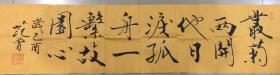 叢菊
两開
他日
淚孤
舟一
繫故
園心
歲乙酉